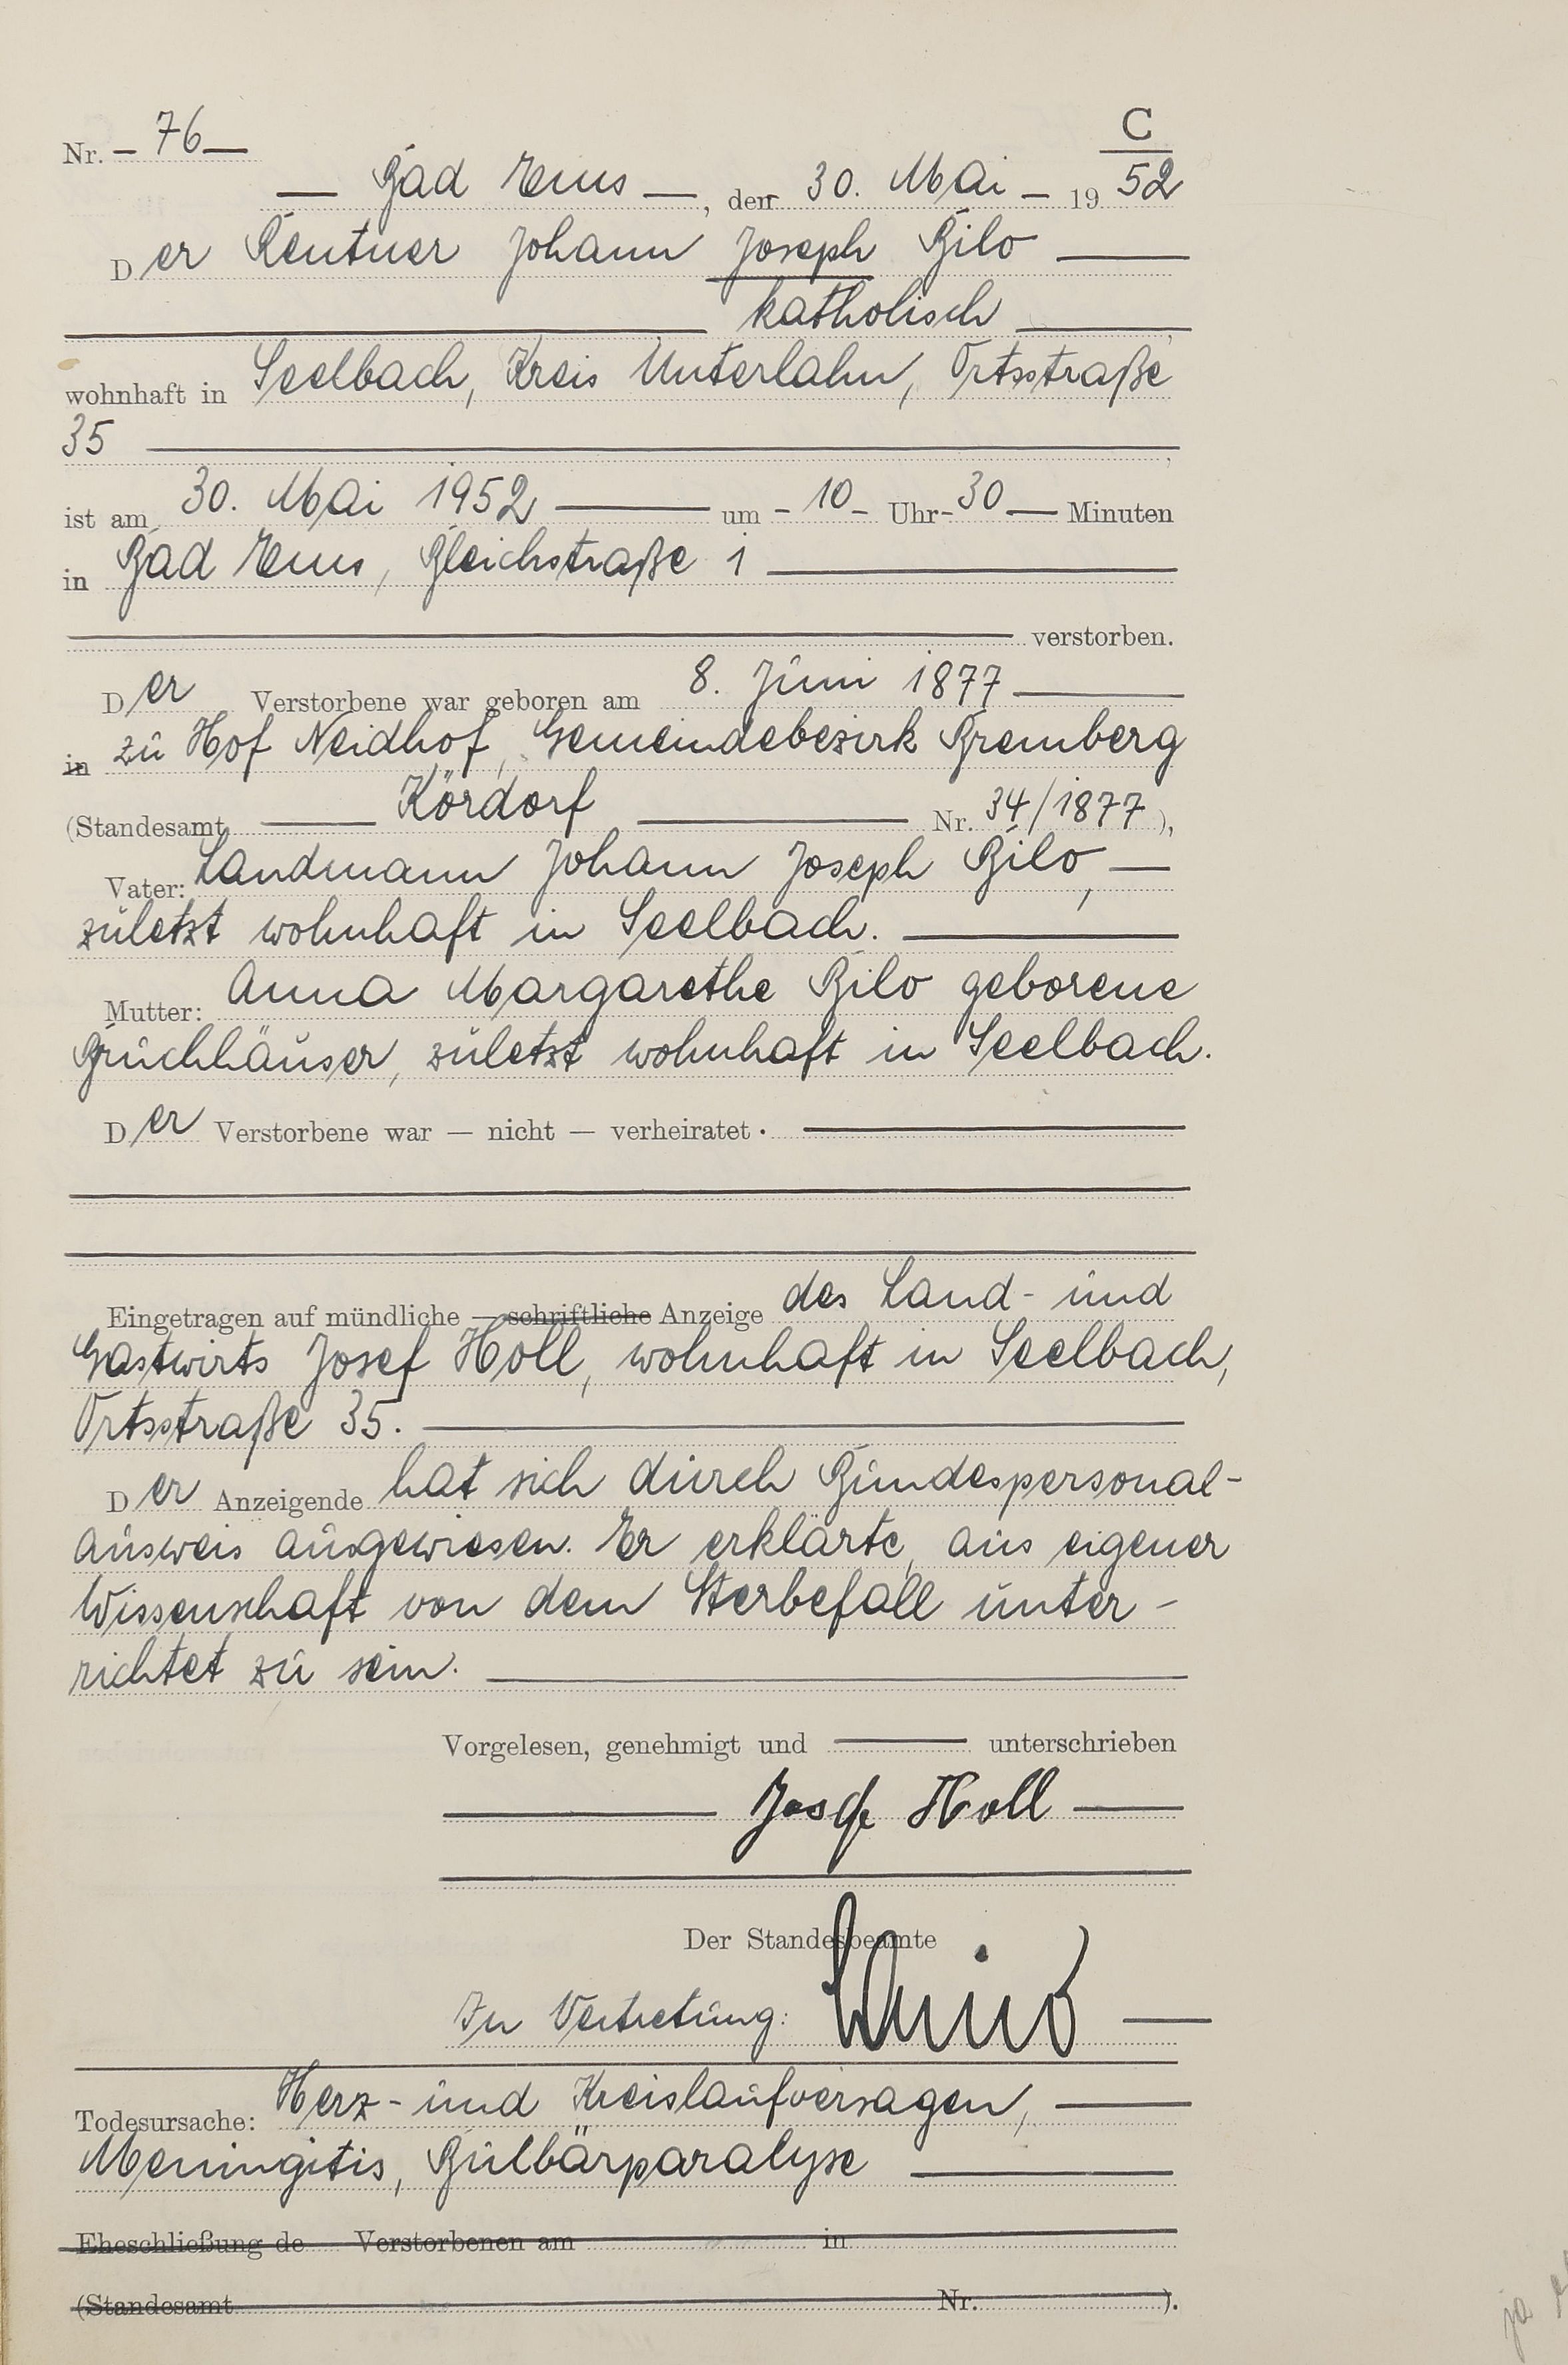 C
Nr. – 76 –
— Bad Ems —, den 30. Mai – 19 52
Der Rentner Johann Joseph Bilo —
— katholisch —,
wohnhaft in Seelbach, Kreis Unterlahn, Ortsstraße
35 —,
ist am 30. Mai 1952 — um – 10 – Uhr – 30 — Minuten
in Bad Ems, Bleichstraße 1 —
— verstorben.
Der Verstorbene war geboren am 8. Juni 1877 —
in zu Hof Neidhof, Gemeindebezirk Bremberg
(Standesamt — Kördorf — Nr. 34/1877),
Vater: Landmann Johann Joseph Bilo, —
zuletzt wohnhaft in Seelbach. —
Mutter: Anna Margarethe Bilo geborene
Bruchhäuser, zuletzt wohnhaft in Seelbach.
Der Verstorbene war — nicht — verheiratet. —
Eingetragen auf mündliche — schriftliche Anzeige des Land- und
Gastwirts Josef Holl, wohnhaft in Seelbach,
Ortsstraße 35. —
Der Anzeigende hat sich durch Bundespersonal-
ausweis ausgewiesen. Er erklärte, aus eigener
Wissenschaft von dem Sterbefall unter-
richtet zu sein. —
Vorgelesen, genehmigt und — unterschrieben
— Josef Holl —
Der Standesbeamte
In Vertretung:
Todesursache: Herz- und Kreislaufversagen, —
Meningitis, Bulbärparalyse —
Eheschließung de Verstorbenen am in
(Standesamt Nr. ).